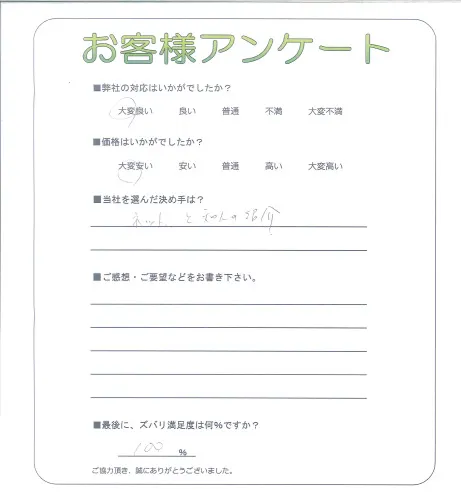 お客様アンケート
■弊社の対応はいかがでしたか？
大変良い 良い 普通 不満 大変不満
■価格はいかがでしたか？
大変安い 安い 普通 高い 大変高い
■当社を選んだ決め手は？
ネット と 知人の紹介
■ご感想・ご要望などをお書き下さい。
■最後に、ズバリ満足度は何%ですか？
100 %
ご協力頂き、誠にありがとうございました。